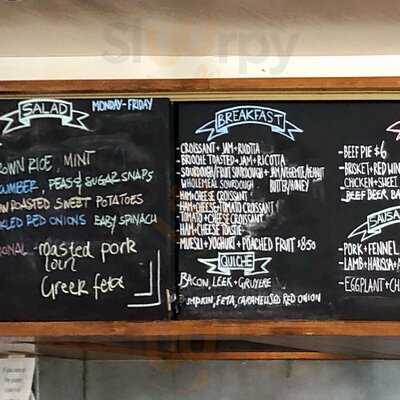 Sirupy
SALAD MONDAY-FRIDAY
BROWN RICE, MINT
CUCUMBER, PEAS & SUGAR SNAPS
ROASTED SWEET POTATOES
PICKLED RED ONIONS BABY SPINACH
OPTIONAL - roasted pork
loin
Greek feta
BREAKFAST
- CROISSANT + JAM + RICOTTA
- BRIOCHE TOASTED + JAM + RICOTTA
- SOURDOUGH/FRUIT SOURDOUGH + JAM/VEGEMITE/PEANUT
WHOLEMEAL SOURDOUGH BUTTER/HONEY
- HAM + CHEESE CROISSANT
- HAM + CHEESE + TOMATO CROISSANT
- TOMATO + CHEESE CROISSANT
- HAM + CHEESE TOASTIE
- MUESLI + YOGHURT + POACHED FRUIT $8.50
QUICHE
BACON, LEEK + GRUYERE
PUMPKIN, FETA, CARAMELISED RED ONION
- BEEF PIE $6
- BRISKET + RED WIN
- CHICKEN + SWEET
BEEF BEER BA
SAUSA
PORK + FENNEL
- LAMB + HARISSA +
- EGGPLANT + CH